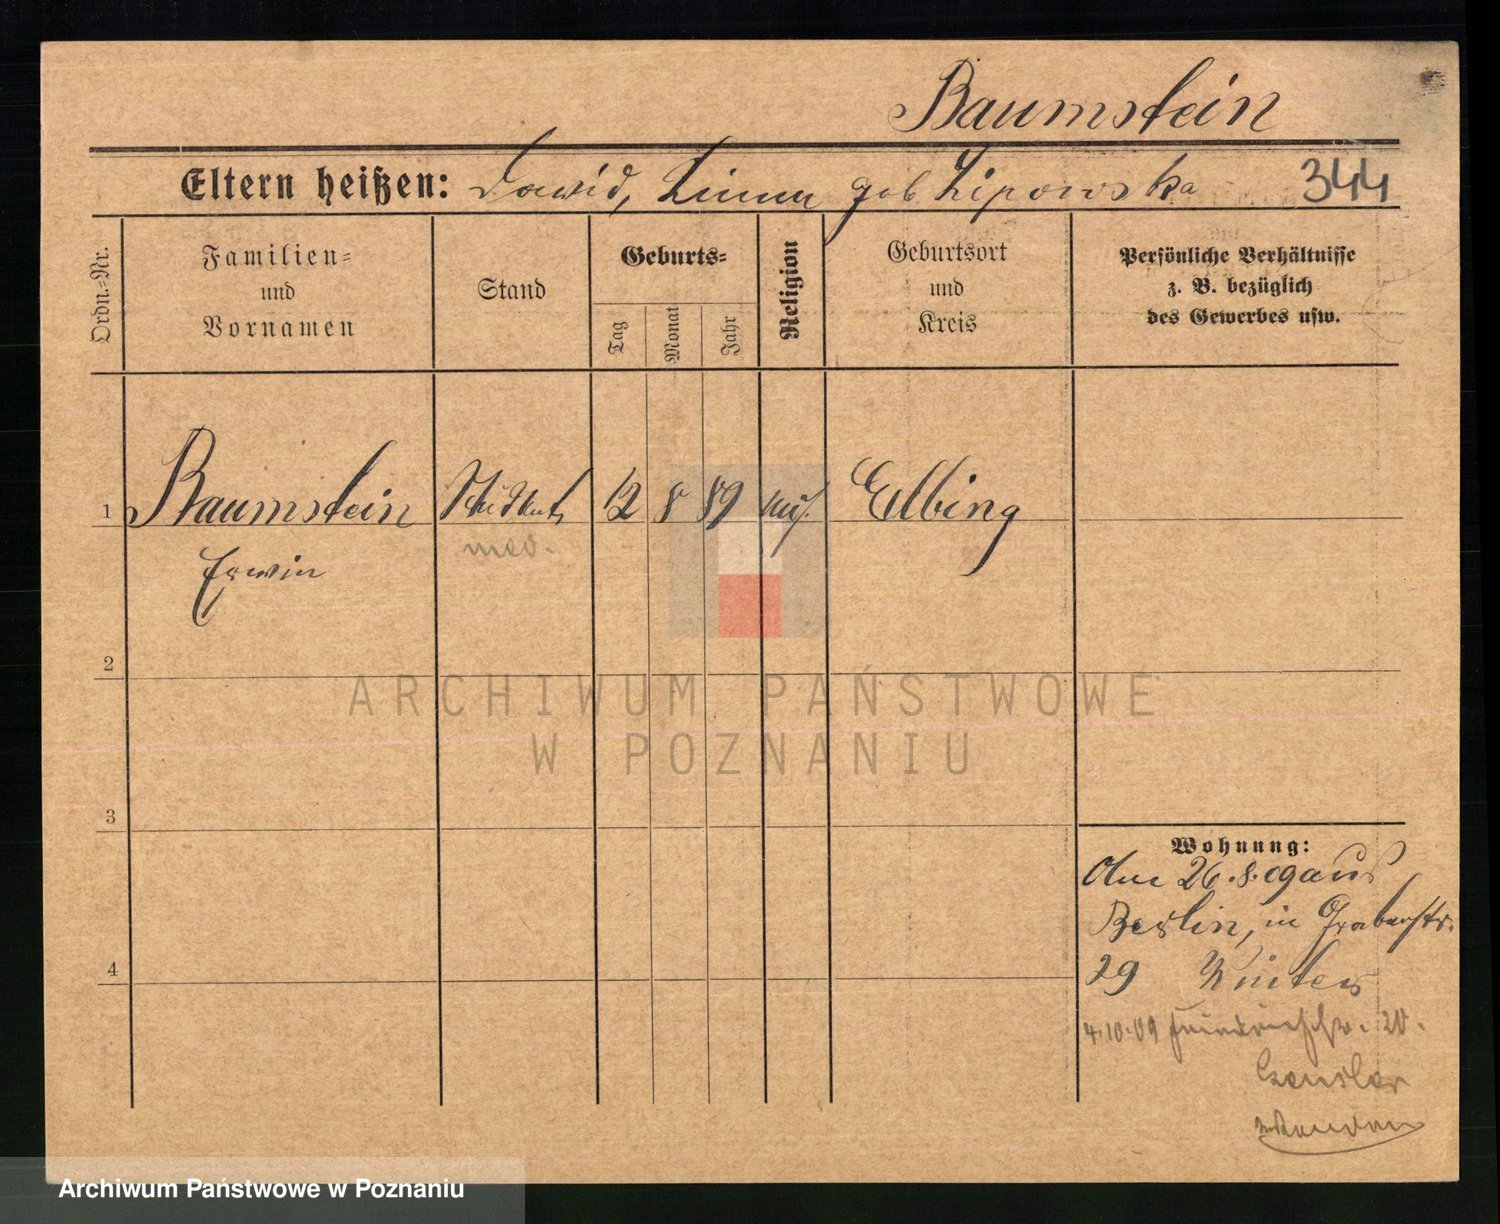 Baumstein
Eltern heißen: Dawid, Linna geb Lipowska 344
Ordn.-Nr.
Familien- und Vornamen
Stand
Geburts-
Tag
Monat
Jahr
Religion
Geburtsort und Kreis
Persönliche Verhältnisse
z. B. bezüglich
des Gewerbes usw.
1 Baumstein Student 12 8 89 Elbing
Erwin med.
2
ARCHIWUM PAŃSTWOWE
W POZNANIU
3
Wohnung:
26.8.09 aus
Berlin, in Grabenstr.
29 Winter
4.10.09 Friedrichstr. 20.
4
Archiwum Państwowe w Poznaniu